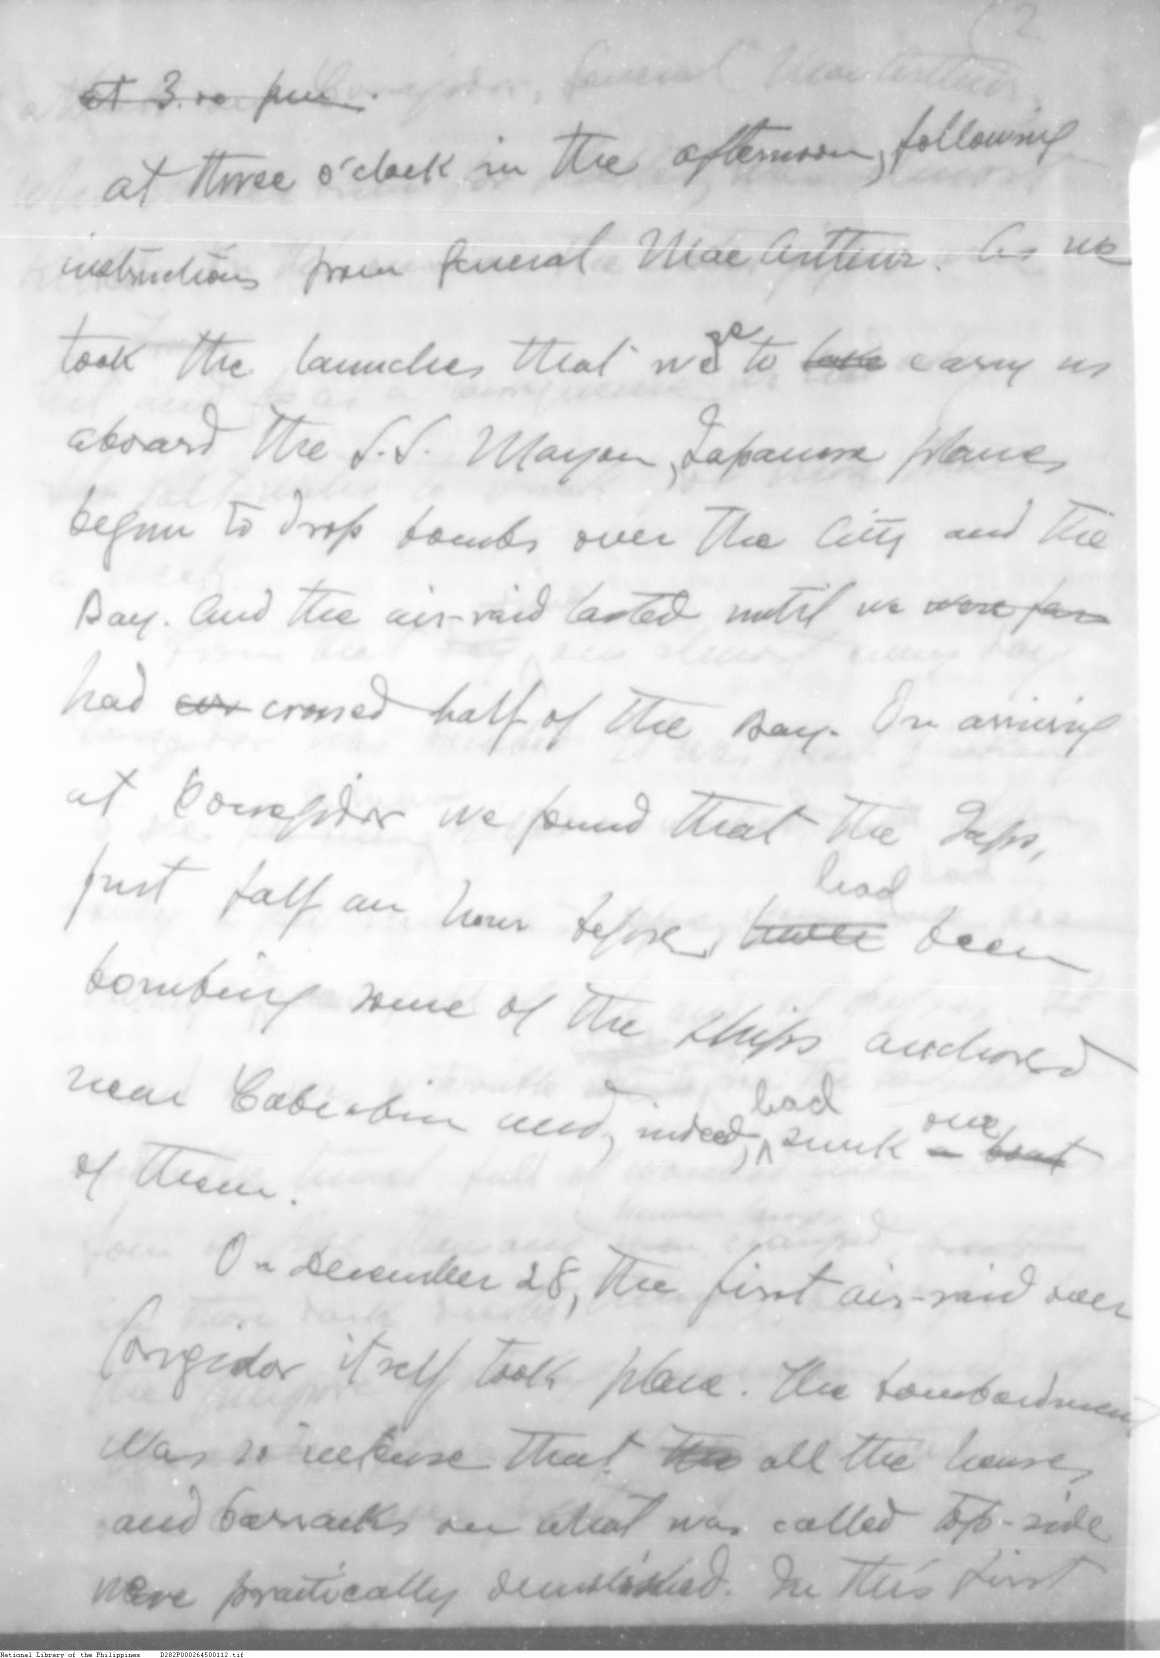 at 3.00 p.m.
at three o'clock in the afternoon, following
instructions from General MacArthur. As we
took the launches that were to take carry us
aboard the S.S. Mayon, Japanese planes
begun to drop bombs over the City and the
Bay. And the air-raid lasted until we were far
had cros crossed half of the Bay. On arriving
at Corregidor we found that the Japs,
just half an hour before, have had been
bombing some of the ships anchored
near Cabcaben and, indeed, had sunk a boat one
of them.
On December 28, the first air-raid over
Corregidor itself took place. The bombardment
was so intense that the all the houses
and barracks on what was called Top-side
were practically demolished. In this first
National Library of the Philippines D282P000264500112.tif